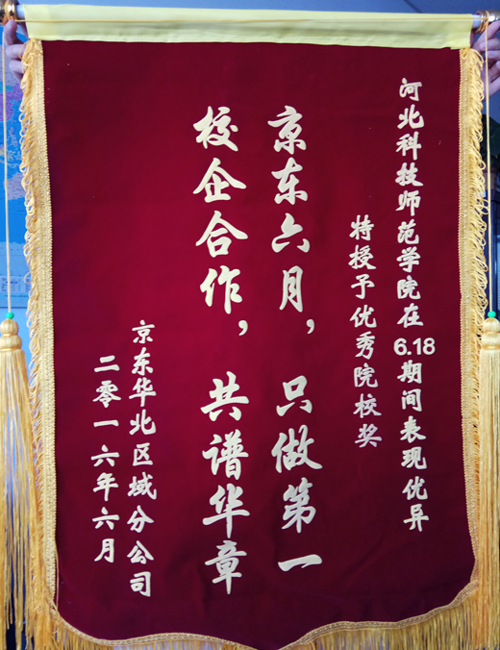 河北科技师范学院在6.18期间表现优异
特授予优秀院校奖
京东六月，只做第一
校企合作，共谱华章
京东华北区域分公司
二零一六年六月